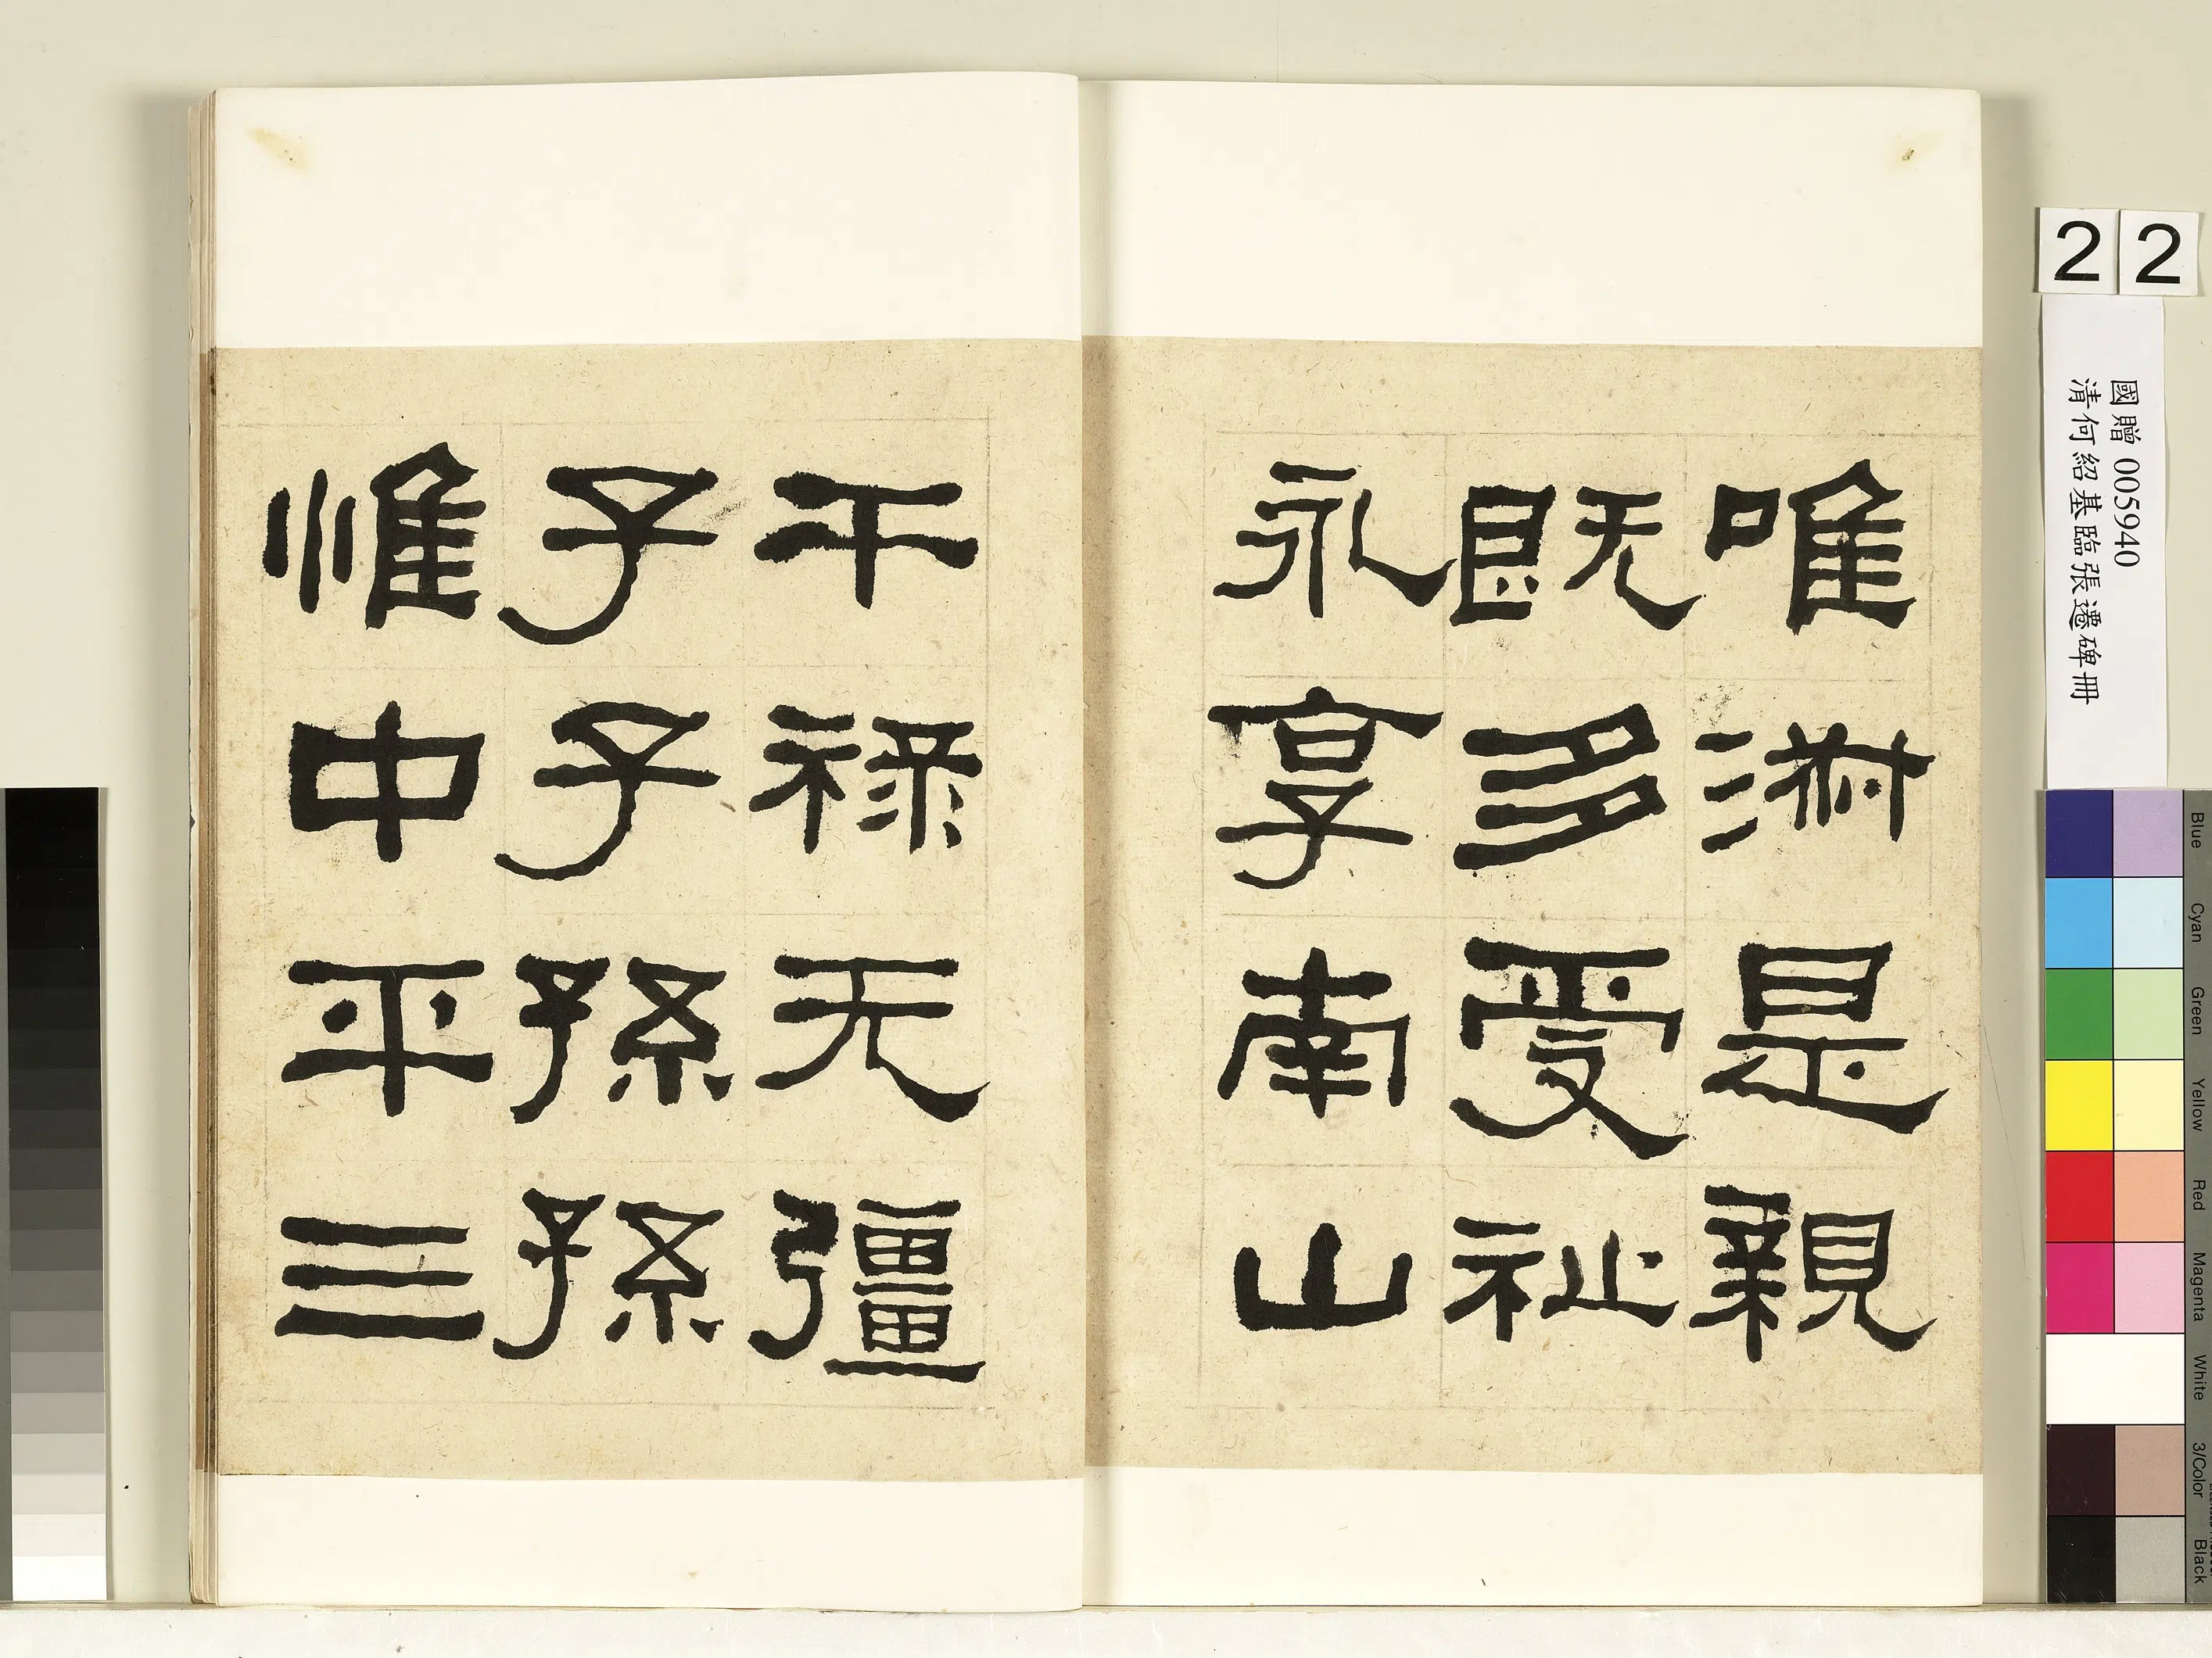 唯淋是親
既多受祉
永享南山
干祿无彊
子子孫孫
惟中平三
22
國贈 005940
清何紹基臨張遷碑冊
Blue
Cyan
Green
Yellow
Red
Magenta
White
3/Color
Black